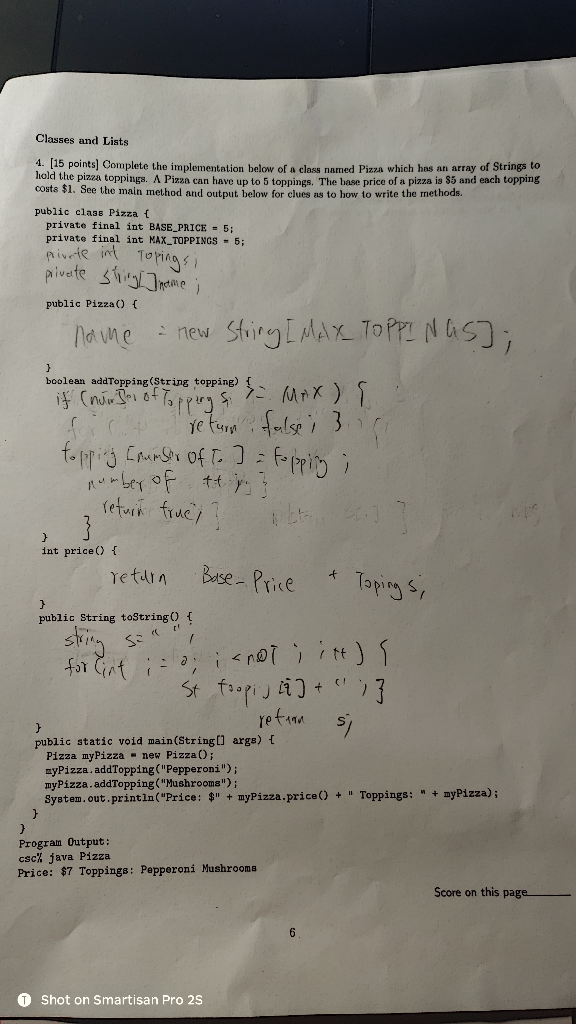 Classes and Lists
4. [15 points] Complete the implementation below of a class named Pizza which has an array of Strings to
hold the pizza toppings. A Pizza can have up to 5 toppings. The base price of a pizza is $5 and each topping
costs $1. See the main method and output below for clues as to how to write the methods.
public class Pizza {
private final int BASE_PRICE = 5;
private final int MAX_TOPPINGS = 5;
private int Topings;
private String[] name;
public Pizza() {
name = new String[MAX_TOPPINGS];
}
boolean addTopping(String topping) {
if (number of Toppings >= MAX) {
return false; }
topping [number of T. ] = topping ;
number of ++ ; }
return true; }
}
}
int price() {
return Base_Price + Topings;
}
public String toString() {
string s= " ";
for (int i = 0; i < noT ; i++) {
return s;
}
public static void main(String[] args) {
Pizza myPizza = new Pizza();
myPizza.addTopping("Pepperoni");
myPizza.addTopping("Mushrooms");
System.out.println("Price: $" + myPizza.price() + " Toppings: " + myPizza);
}
}
Program Output:
csc% java Pizza
Price: $7 Toppings: Pepperoni Mushrooms
Score on this page
6
Shot on Smartisan Pro 2S